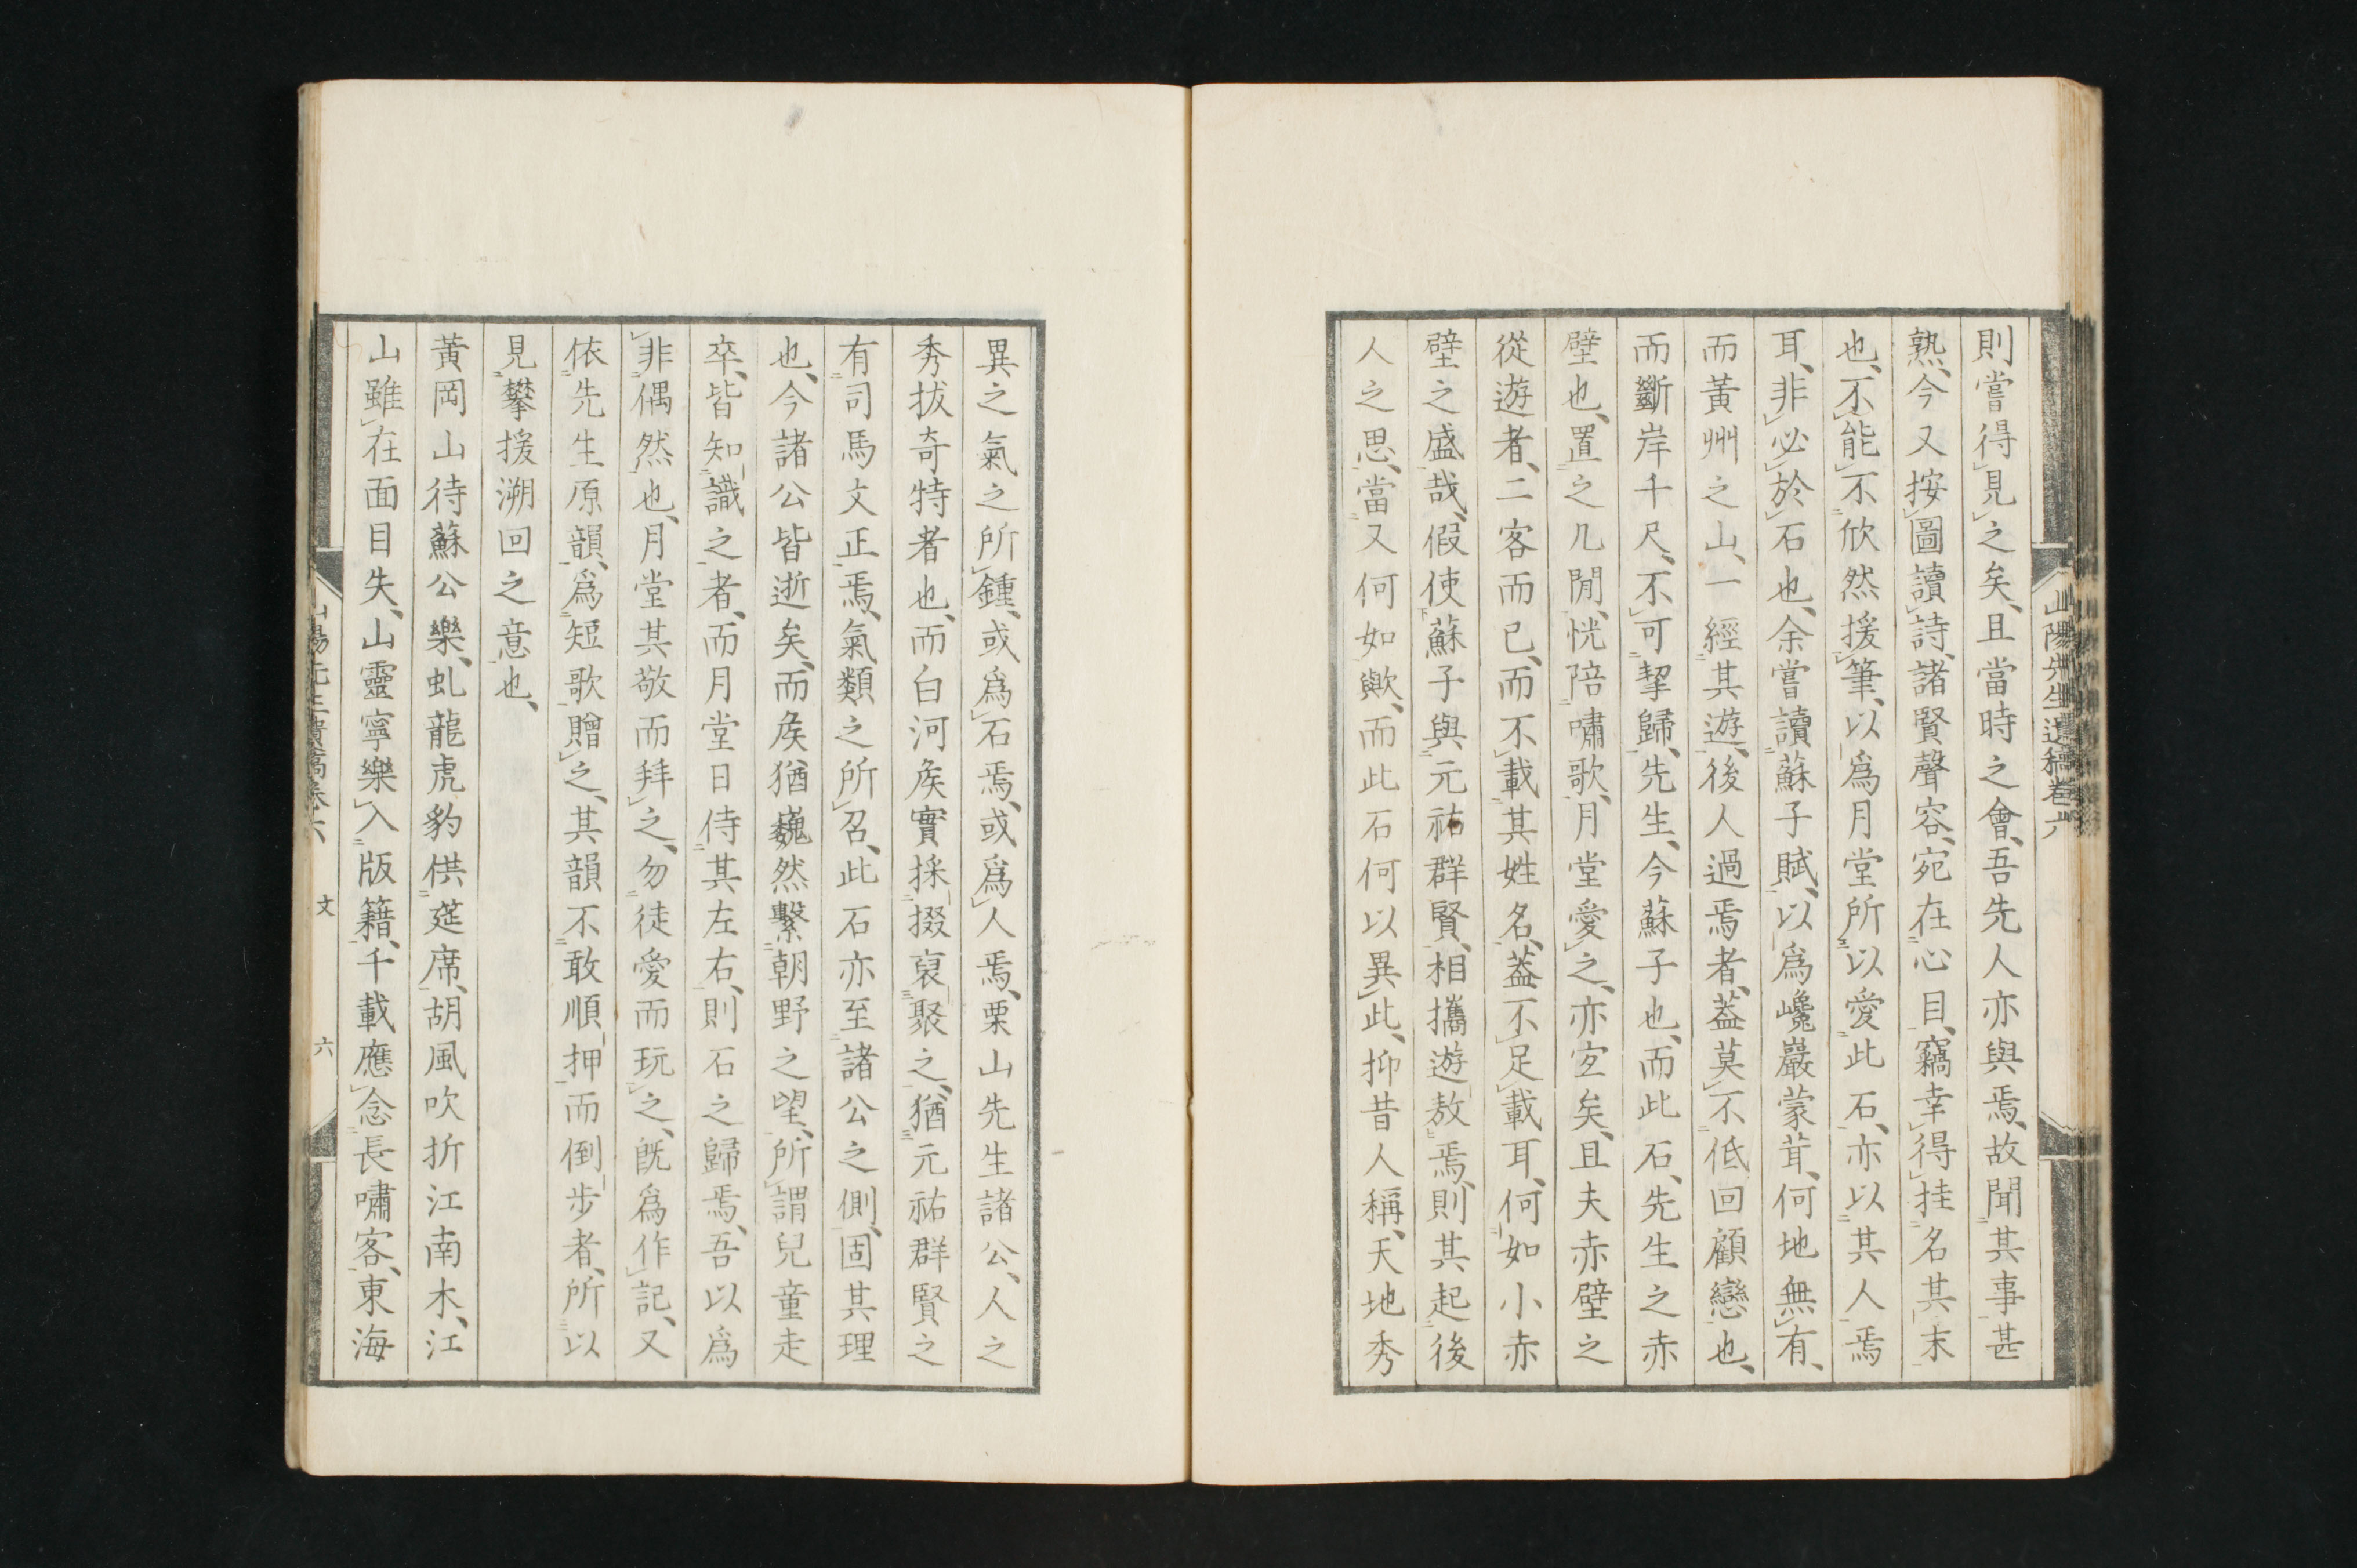 則嘗得見之矣、且當時之會、吾先人亦與焉、故聞其事甚
熟、今又按圖讀詩、諸賢聲容、宛在心目、竊幸得挂名其末
也、不能不欣然援筆、以爲月堂所以愛此石、亦以其人焉
耳、非必於石也、余嘗讀蘇子賦、以爲巉巖蒙茸、何地無有、
而黃州之山、一經其遊、後人過焉者、葢莫不低回顧戀也、
而斷岸千尺、不可挈歸、先生、今蘇子也、而此石、先生之赤
壁也、置之几間、恍陪嘯歌、月堂愛之、亦宜矣、且夫赤壁之
從遊者、二客而已、而不載其姓名、葢不足載耳、何如小赤
壁之盛哉、假使蘇子與元祐群賢、相攜遊敖焉、則其起後
人之思、當又何如歟、而此石何以異此、抑昔人稱、天地秀
山陽先生遺稿卷六
異之氣之所鍾、或爲石焉、或爲人焉、栗山先生諸公、人之
秀拔奇特者也、而白河矦實採掇裒聚之、猶元祐群賢之
有司馬文正焉、氣類之所召、此石亦至諸公之側、固其理
也、今諸公皆逝矣、而矦猶巍然繫朝野之望、所謂兒童走
卒、皆知識之者、而月堂日侍其左右、則石之歸焉、吾以爲
非偶然也、月堂其敬而拜之、勿徒愛而玩之、旣爲作記、又
依先生原韻、爲短歌贈之、其韻不敢順押而倒步者、所以
見攀援溯回之意也、
黃岡山待蘇公樂、虬龍虎豹供筵席、胡風吹折江南木、江
山雖在面目失、山靈寧樂入版籍、千載應念長嘯客、東海
山陽先生遺稿卷六　文　六